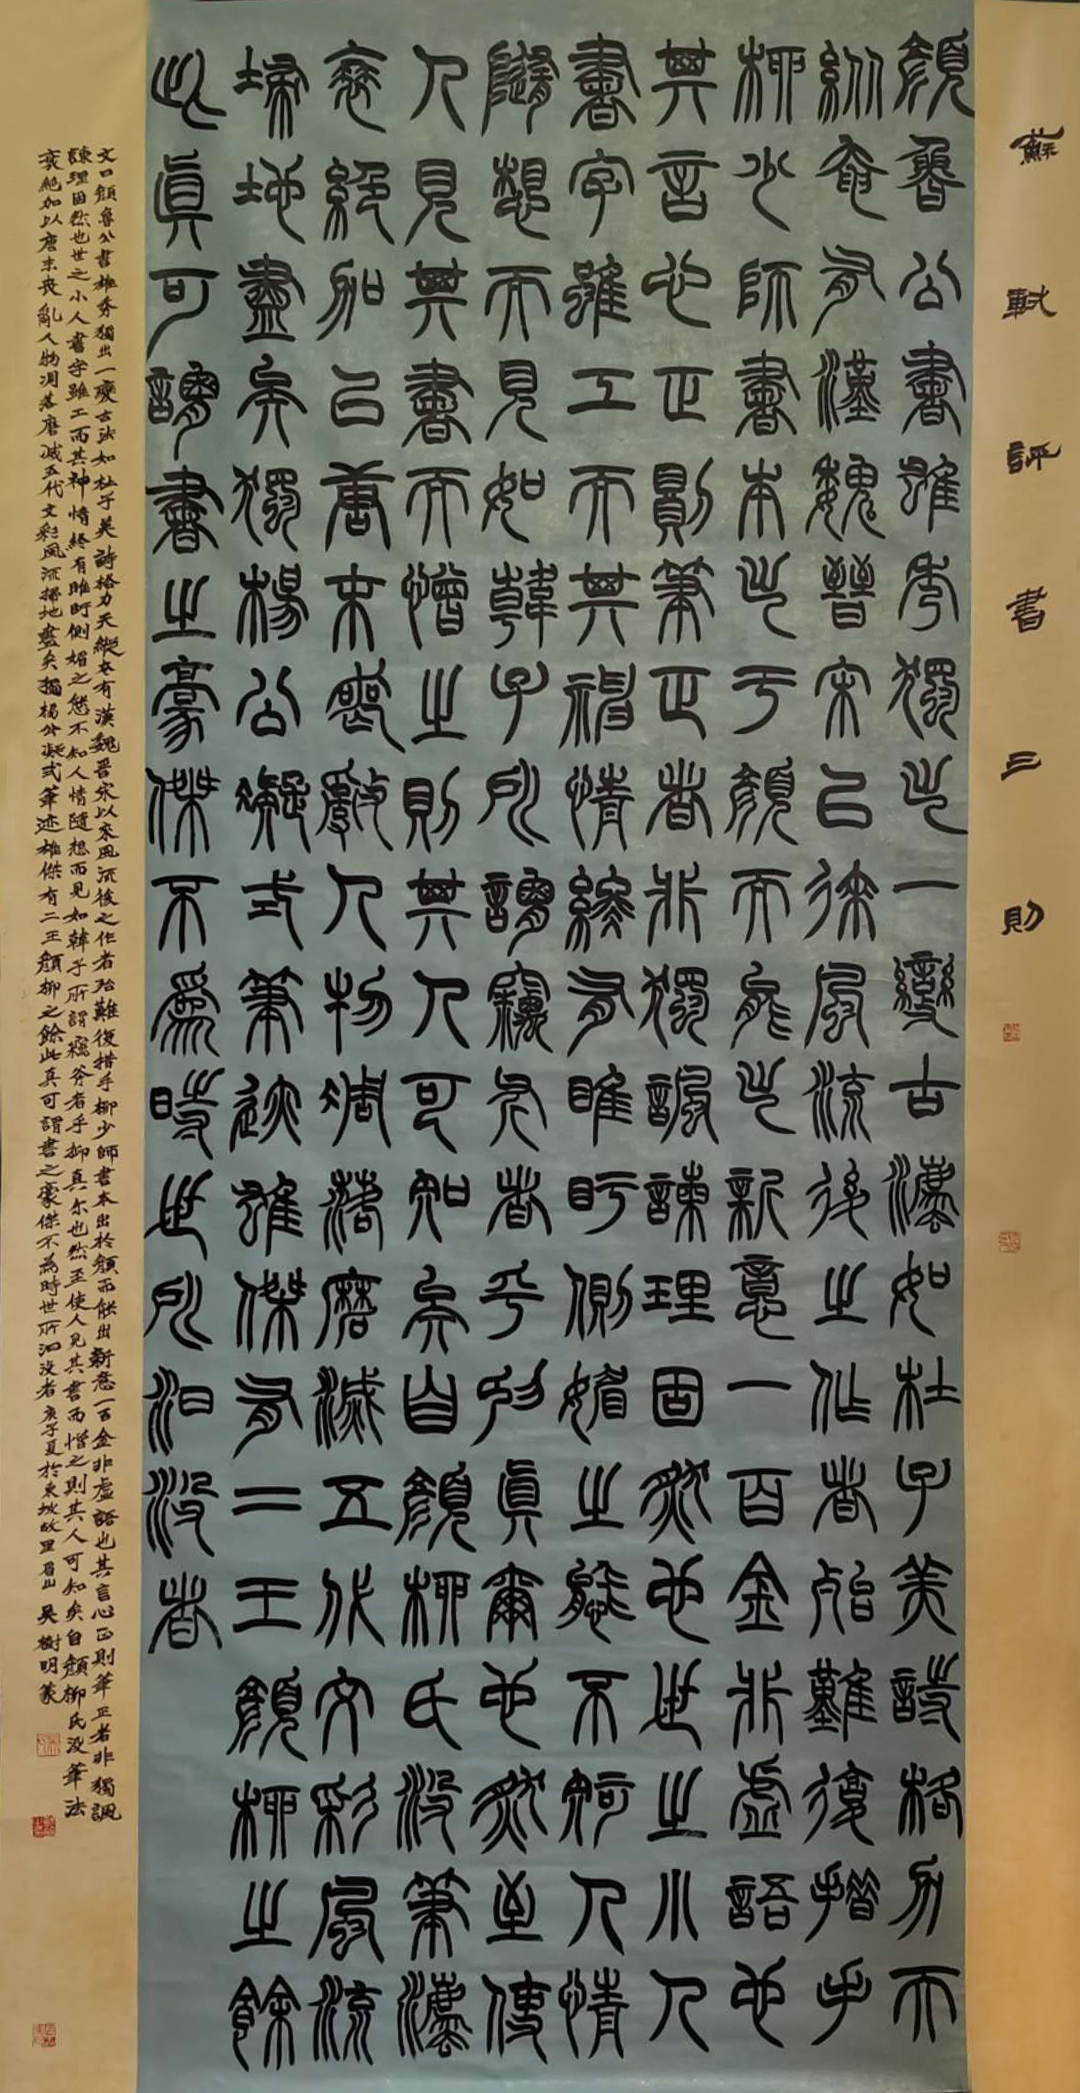 蘇軾評書三則
顏魯公書雄秀獨出一變古灋如杜子美詩格力天
縱奄有漢魏晉宋以徠風流後之作者殆難復措手
柳少師書本出于顏而能出新意一百金非虛語也
其言心正則筆正者非獨諷諫理固然也世之小人
書字雖工而其神情終有睢盱側媚之態不知人情
隨想而見如韓子所謂竊斧者乎抑真爾也然至使
人見其書而憎之則其人可知矣自顏柳氏沒筆灋
衰絕加以唐末喪亂人物凋落磨滅五代文彩風流
掃地盡矣獨楊公凝式筆迹雄傑有二王顏柳之餘
此真可謂書之豪傑不為時世所汩沒者
文曰顏魯公書雄秀獨出一變古法如杜子美詩格力天縱奄有漢魏晉宋以來風流後之作者殆難復措手柳少師書本出於顏而能出新意一百金非虛語也其言心正則筆正者非獨諷
諫理固然也世之小人書字雖工而其神情終有睢盱側媚之態不知人情隨想而見如韓子所謂竊斧者乎抑真尔也然至使人見其書而憎之則其人可知矣自顏柳氏沒筆法
衰絕加以唐末喪亂人物凋落磨滅五代文彩風流掃地盡矣獨楊公凝式筆迹雄傑有二王顏柳之餘此真可謂書之豪傑不為時世所汩沒者 庚子夏於東坡故里眉山 吳樹明篆